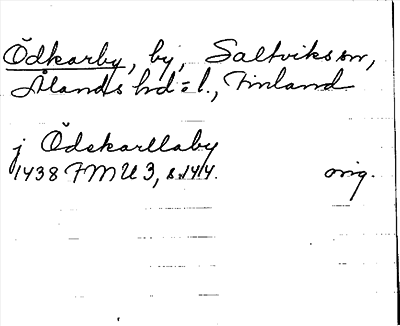 Ödkarby, by, Saltviks sn,
Ålands hd=l., Finland
j Ödskarllaby
1438 FMU 3, s. 1414. orig.